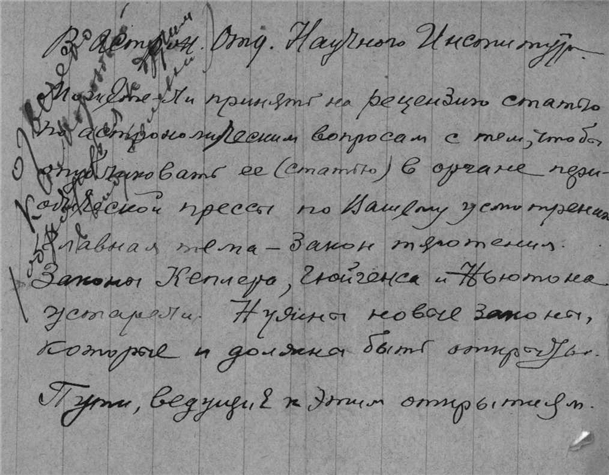 В Астрон. Отд. Научного Института.
Можете ли принять на рецензию статью
по астрономическим вопросам с тем, чтобы
опубликовать ее (статью) в органе пери-
одической прессы по Вашему усмотрению
Главная тема – закон тяготения.
Законы Кеплера, Гюйгенса и Ньютона
устарели. Нужны новые законы,
которые и должны быть открыты.
Пути, ведущие к этим открытиям.